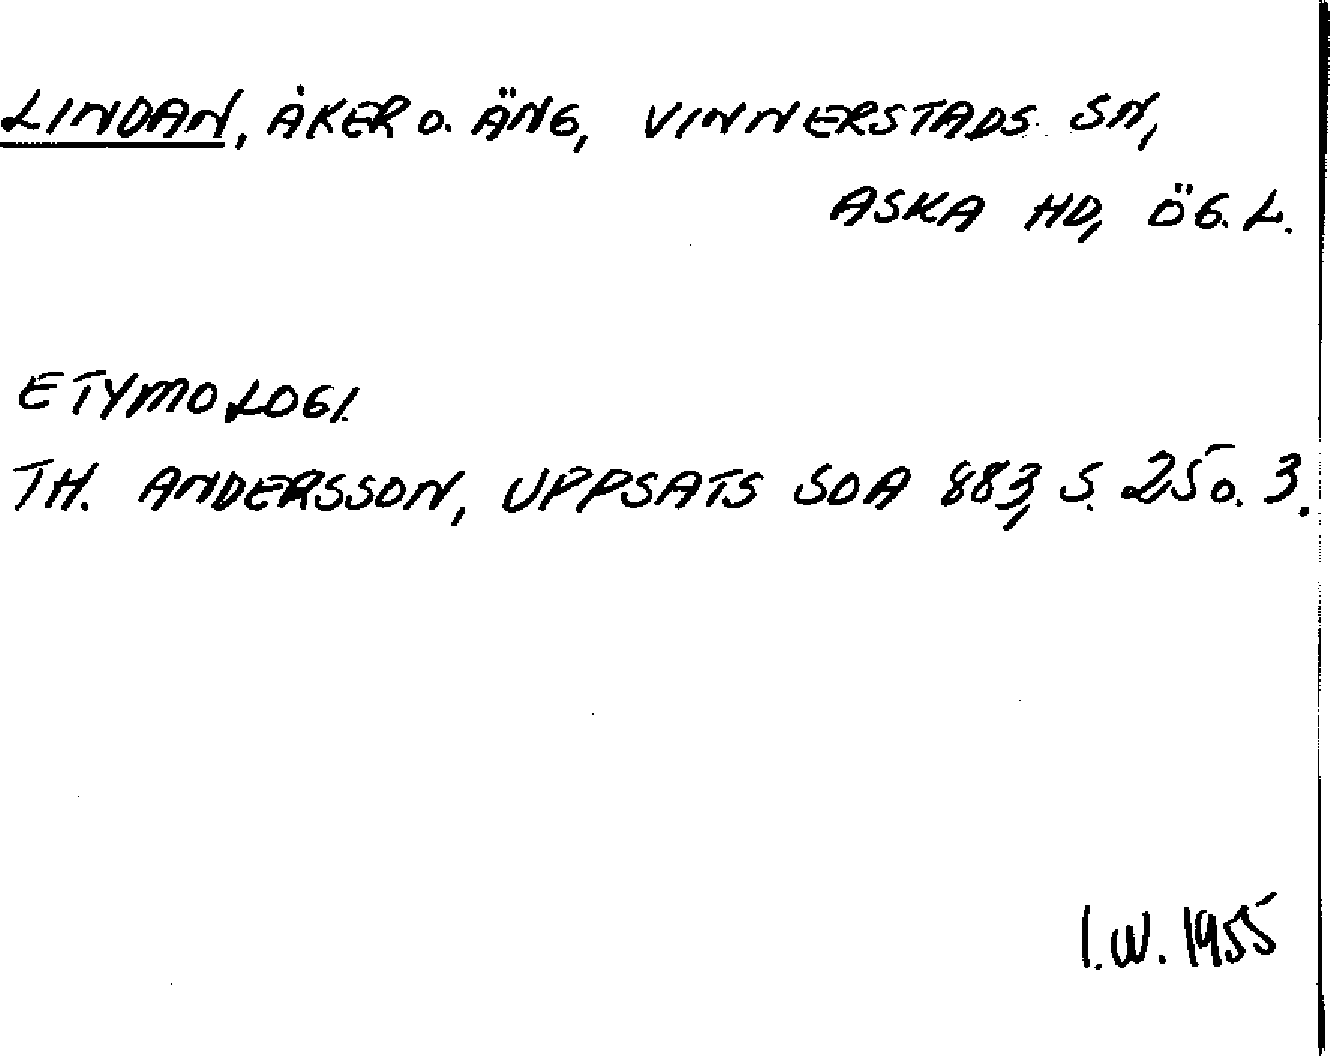 LINDAN, ÅKER O. ÄNG, VINNERSTADS SN,
ASKA HD, ÖG. L.
ETYMOLOGI.
TH. ANDERSSON, UPPSATS SOA 883, S. 25 o. 3.
I.W. 1955